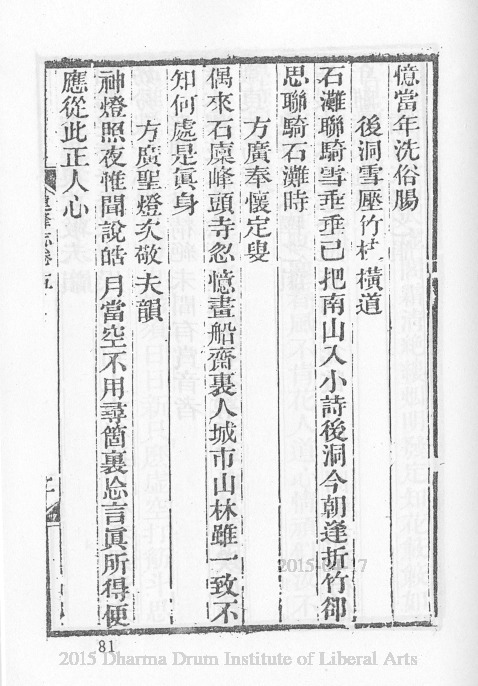 憶當年洗俗腸
後洞雪壓竹枝橫道
石灘聯騎雪垂垂已把南山入小詩後洞今朝逢折竹郤
思聯騎石灘時
方廣奉懷定叟
偶來石廩峰頭寺忽憶畫船齋裏人城市山林雖一致不
知何處是眞身
方廣聖燈次敬夫韻
神燈照夜惟聞說皓月當空不用尋箇裏忩言眞所得便
應從此正人心
81
2015 Dharma Drum Institute of Liberal Arts